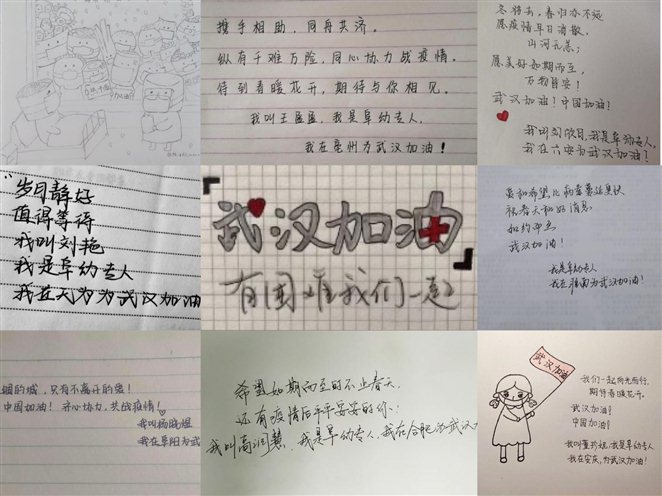 携手相助，同舟共济。
纵有千难万险，同心协力战疫情。
待到春暖花开，期待与你相见。
我叫王孟孟，我是阜幼专人，
我在亳州为武汉加油！
冬将去，春归亦不远
愿疫情早日消散，
山河无恙；
愿美好如期而至，
万物皆安！
武汉加油！中国加油！
我是阜幼专人，
我在六安为武汉加油！
岁月静好
值得等待
我叫刘艳
我是阜幼专人
我在无为为武汉加油
武汉加油
有困难我们一起
爱和希望，比病毒蔓延更快
祝春天和好消息
如约而至
武汉加油！
我是阜幼专人
我在淮南为武汉加油！
的城，只有不离开的爱！
中国加油！齐心协力，共战疫情！
我叫杨晓煜
我在阜阳为武
希望如期而至的不止春天，
还有疫情后平平安安的你，
我叫高润慧，我是阜幼专人，我在合肥为武汉
武汉加油
我们一起向光而行，
期待春暖花开。
武汉加油！
中国加油！
我是阜幼专人
我在安庆，为武汉加油！